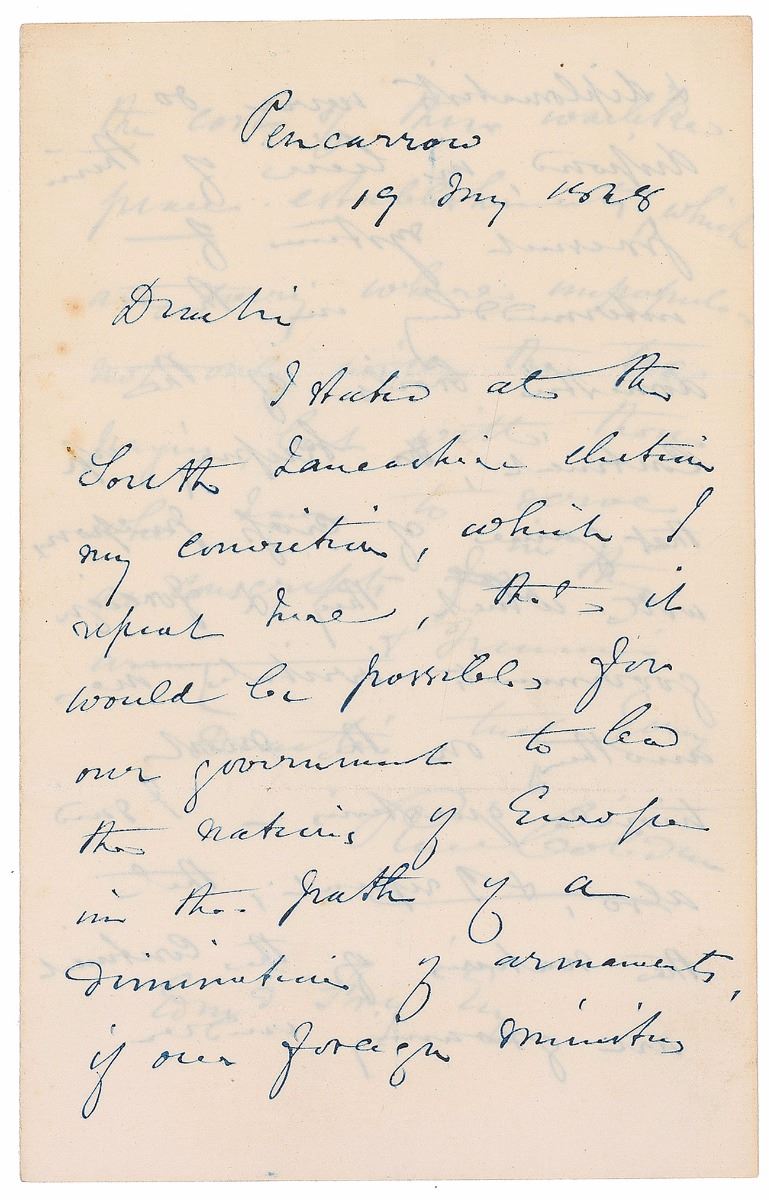 Pencarrow
19
Dear Sir
I stated at the
South Lancashire election
my conviction, which I
repeat here, that it
would be possible for
our government to lead
the nations of Europe
in the path of a
diminution of armaments,
if our foreign ministers